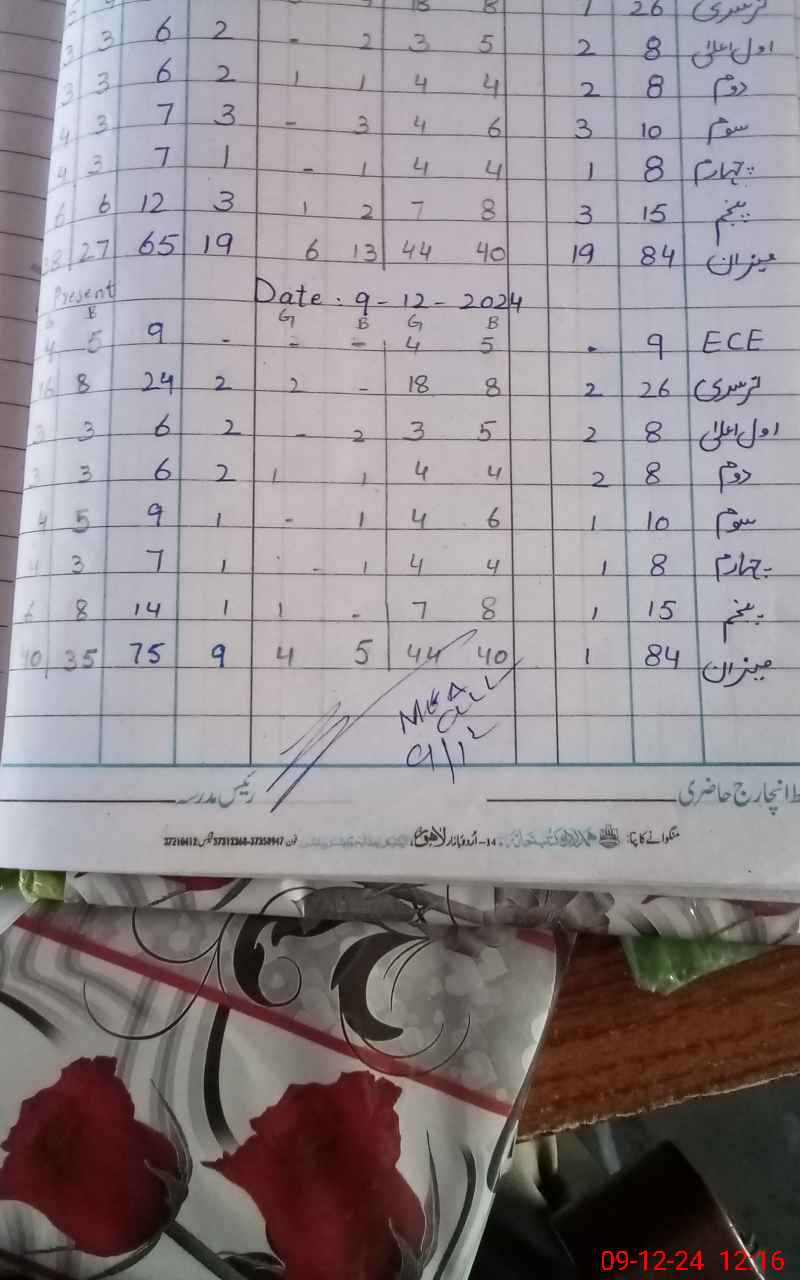 18 8 1 26 نرسری
3 3 6 2 - 2 3 5 2 8 اول اعلیٰ
3 3 6 2 1 1 4 4 2 8 دوم
4 3 7 3 - 3 4 6 3 10 سوم
4 3 7 1 - 1 4 4 1 8 چہارم
6 6 12 3 1 2 7 8 3 15 پنجم
38 27 65 19 6 13 44 40 19 84 میزان
Present Date . 9 - 12 - 2024
G B G B G B
4 5 9 - - - 4 5 - 9 ECE
16 8 24 2 2 - 18 8 2 26 نرسری
3 3 6 2 - 2 3 5 2 8 اول اعلیٰ
3 3 6 2 1 1 4 4 2 8 دوم
4 5 9 1 - 1 4 6 1 10 سوم
4 3 7 1 - 1 4 4 1 8 چہارم
6 8 14 1 1 - 7 8 1 15 پنجم
40 35 75 9 4 5 44 40 1 84 میزان
MEA
9/12
انچارج حاضری رئیس مدرسہ
منگوانے کا پتہ: 14-اردو بازار لاہور، فون 37358947-37312368 فیکس 37210412
09-12-24 12:16